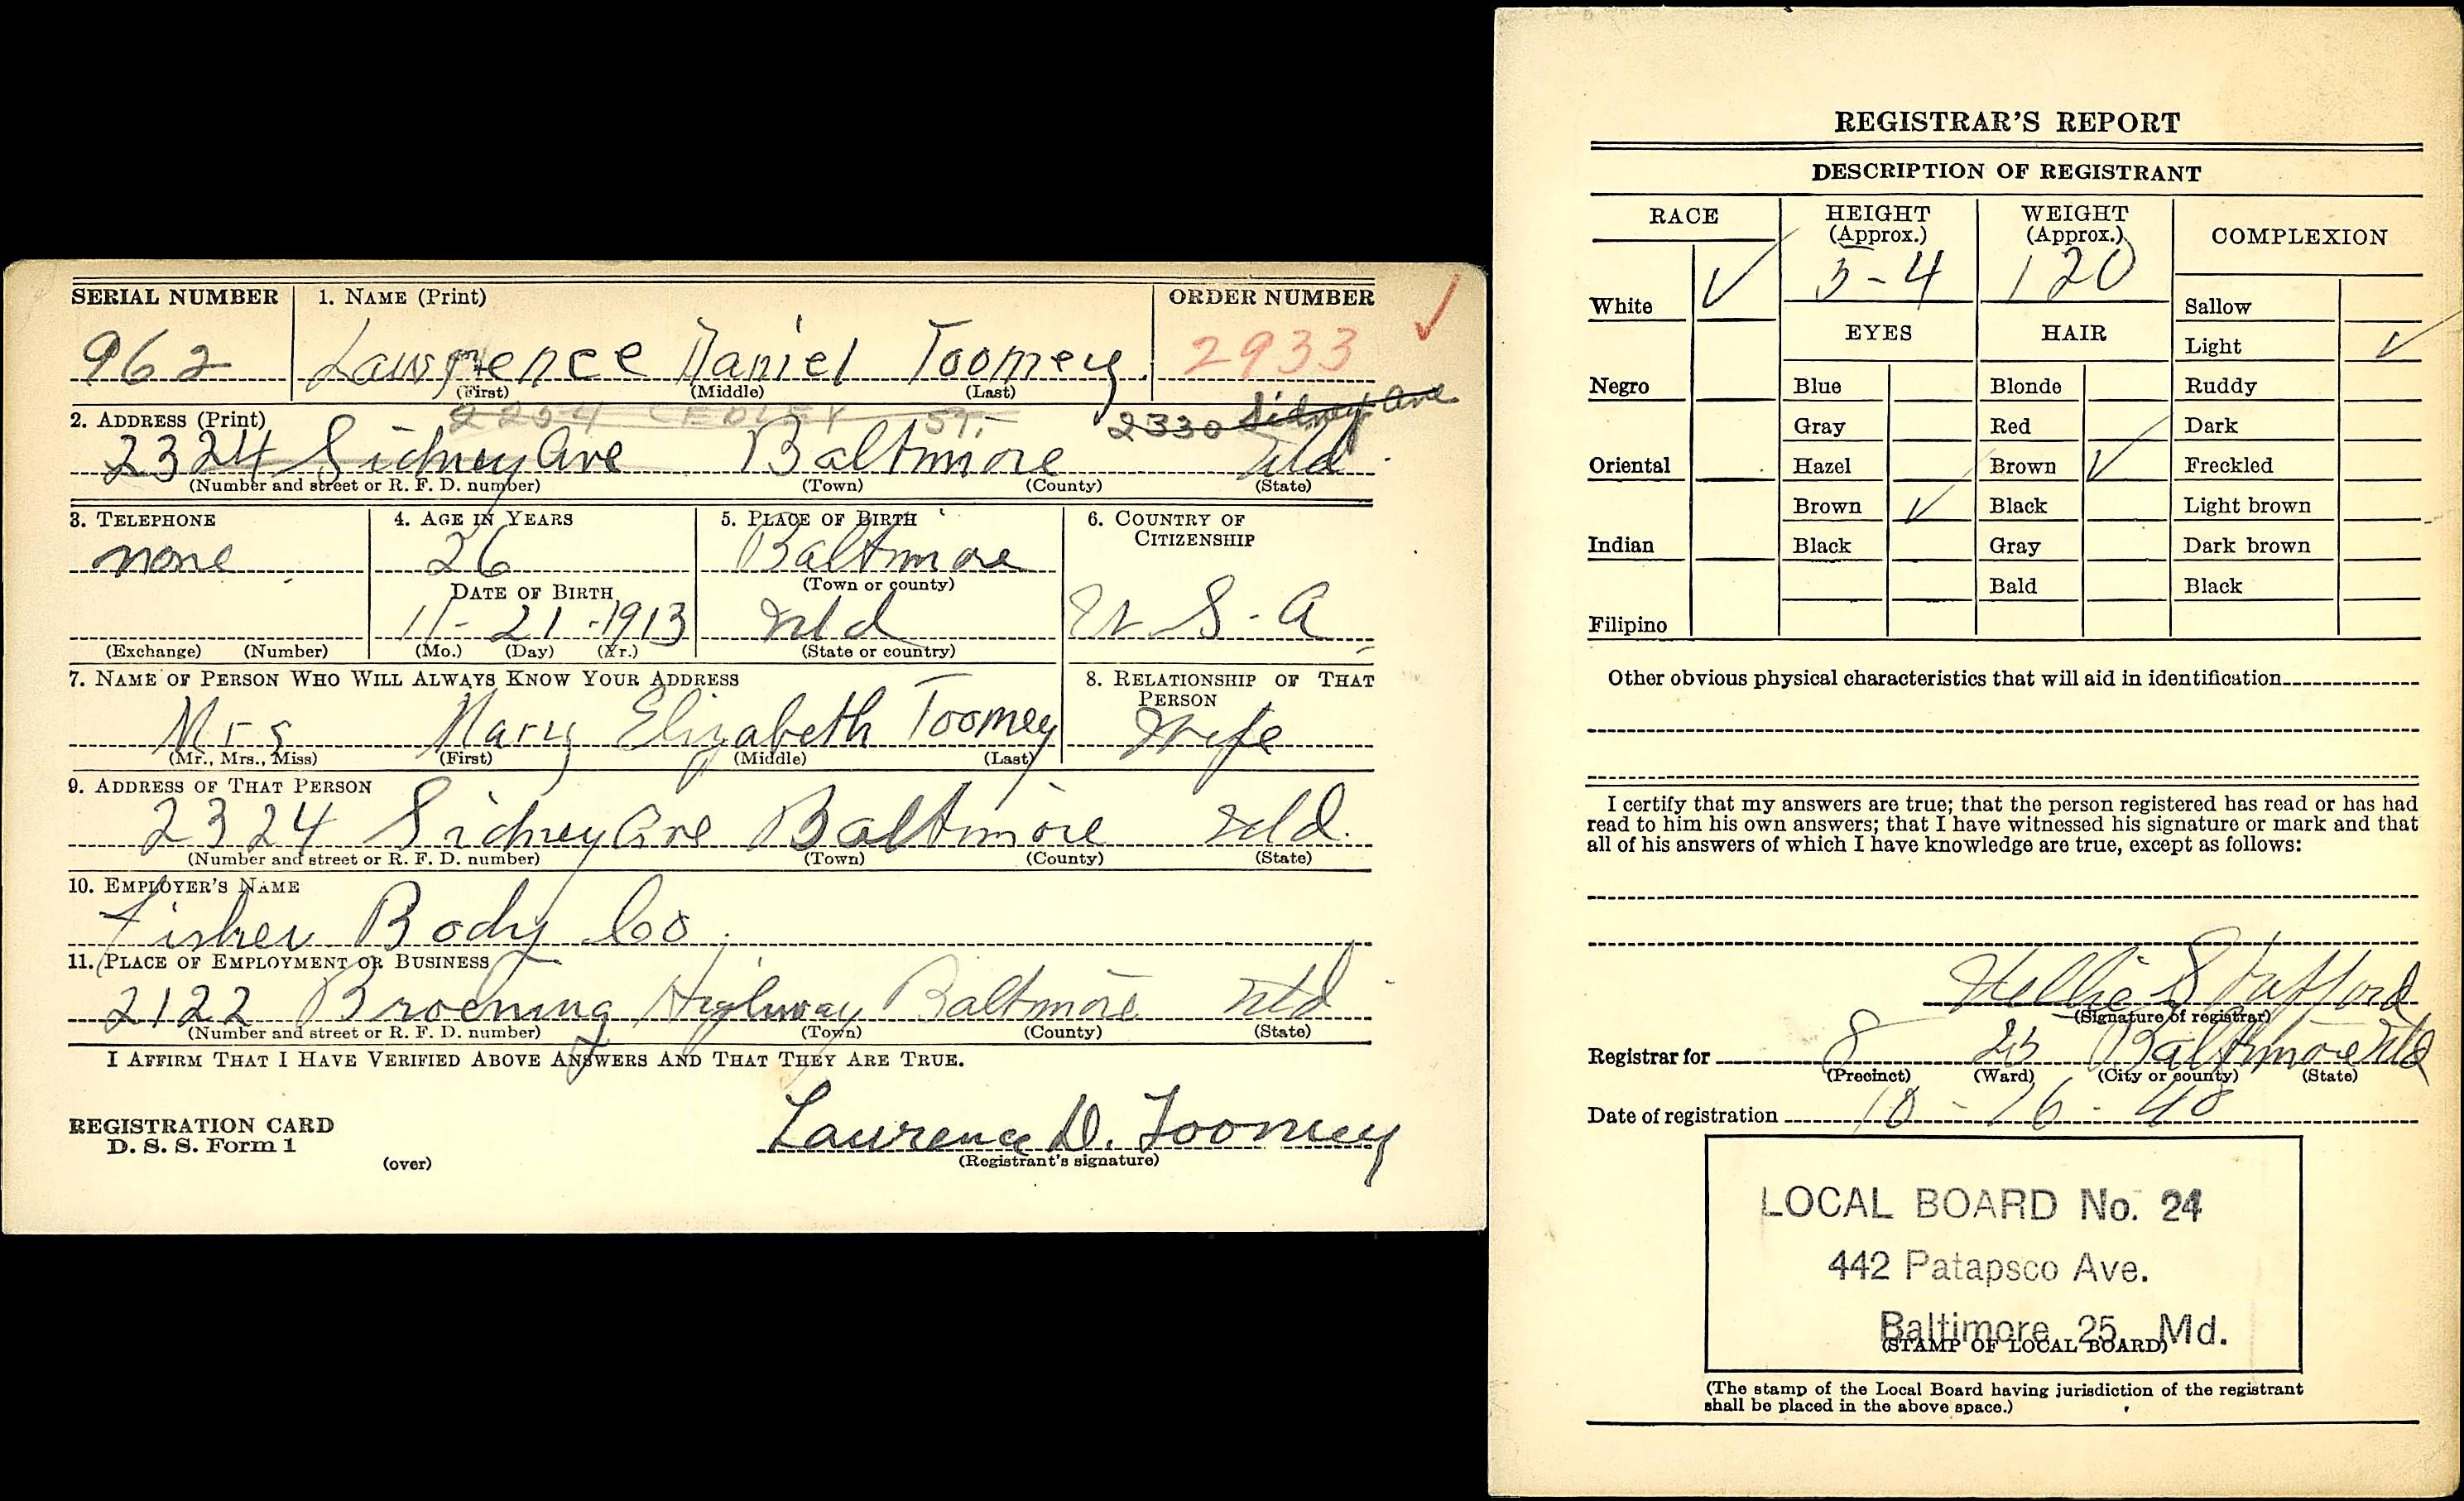 SERIAL NUMBER 1. NAME (Print) ORDER NUMBER
962 Lawrence Daniel Toomey 2933
(First) (Middle) (Last)
2. ADDRESS (Print) 2254 ST. 2330 Sidney Ave
2324 Sidney Ave Baltimore Md
(Number and street or R. F. D. number) (Town) (County) (State)
3. TELEPHONE 4. AGE IN YEARS 5. PLACE OF BIRTH 6. COUNTRY OF CITIZENSHIP
none 26 Baltimore
(Town or county)
DATE OF BIRTH
11-21-1913 Md U.S.A
(Exchange) (Number) (Mo.) (Day) (Yr.) (State or country)
7. NAME OF PERSON WHO WILL ALWAYS KNOW YOUR ADDRESS 8. RELATIONSHIP OF THAT PERSON
Mrs Mary Elizabeth Toomey Wife
(Mr., Mrs., Miss) (First) (Middle) (Last)
9. ADDRESS OF THAT PERSON
2324 Sidney Ave Baltimore Md.
(Number and street or R. F. D. number) (Town) (County) (State)
10. EMPLOYER'S NAME
Fisher Body Co.
11. PLACE OF EMPLOYMENT OR BUSINESS
2122 Broening Highway Baltimore Md
(Number and street or R. F. D. number) (Town) (County) (State)
I AFFIRM THAT I HAVE VERIFIED ABOVE ANSWERS AND THAT THEY ARE TRUE.
REGISTRATION CARD
D. S. S. Form 1
(over)
Laurence D. Toomey
(Registrant's signature)
REGISTRAR'S REPORT
DESCRIPTION OF REGISTRANT
RACE HEIGHT (Approx.) WEIGHT (Approx.) COMPLEXION
White ✓ 5-4 120 Sallow
EYES HAIR Light ✓
Negro Blue Blonde Ruddy
Gray Red Dark
Oriental Hazel Brown ✓ Freckled
Brown ✓ Black Light brown
Indian Black Gray Dark brown
Bald Black
Filipino
Other obvious physical characteristics that will aid in identification
I certify that my answers are true; that the person registered has read or has had
read to him his own answers; that I have witnessed his signature or mark and that
all of his answers of which I have knowledge are true, except as follows:
Stafford
(Signature of registrar)
Registrar for 8 25 Baltimore Md
(Precinct) (Ward) (City or county) (State)
Date of registration 10-16-40
LOCAL BOARD No. 24
442 Patapsco Ave.
Baltimore 25, Md.
(STAMP OF LOCAL BOARD)
(The stamp of the Local Board having jurisdiction of the registrant
shall be placed in the above space.)